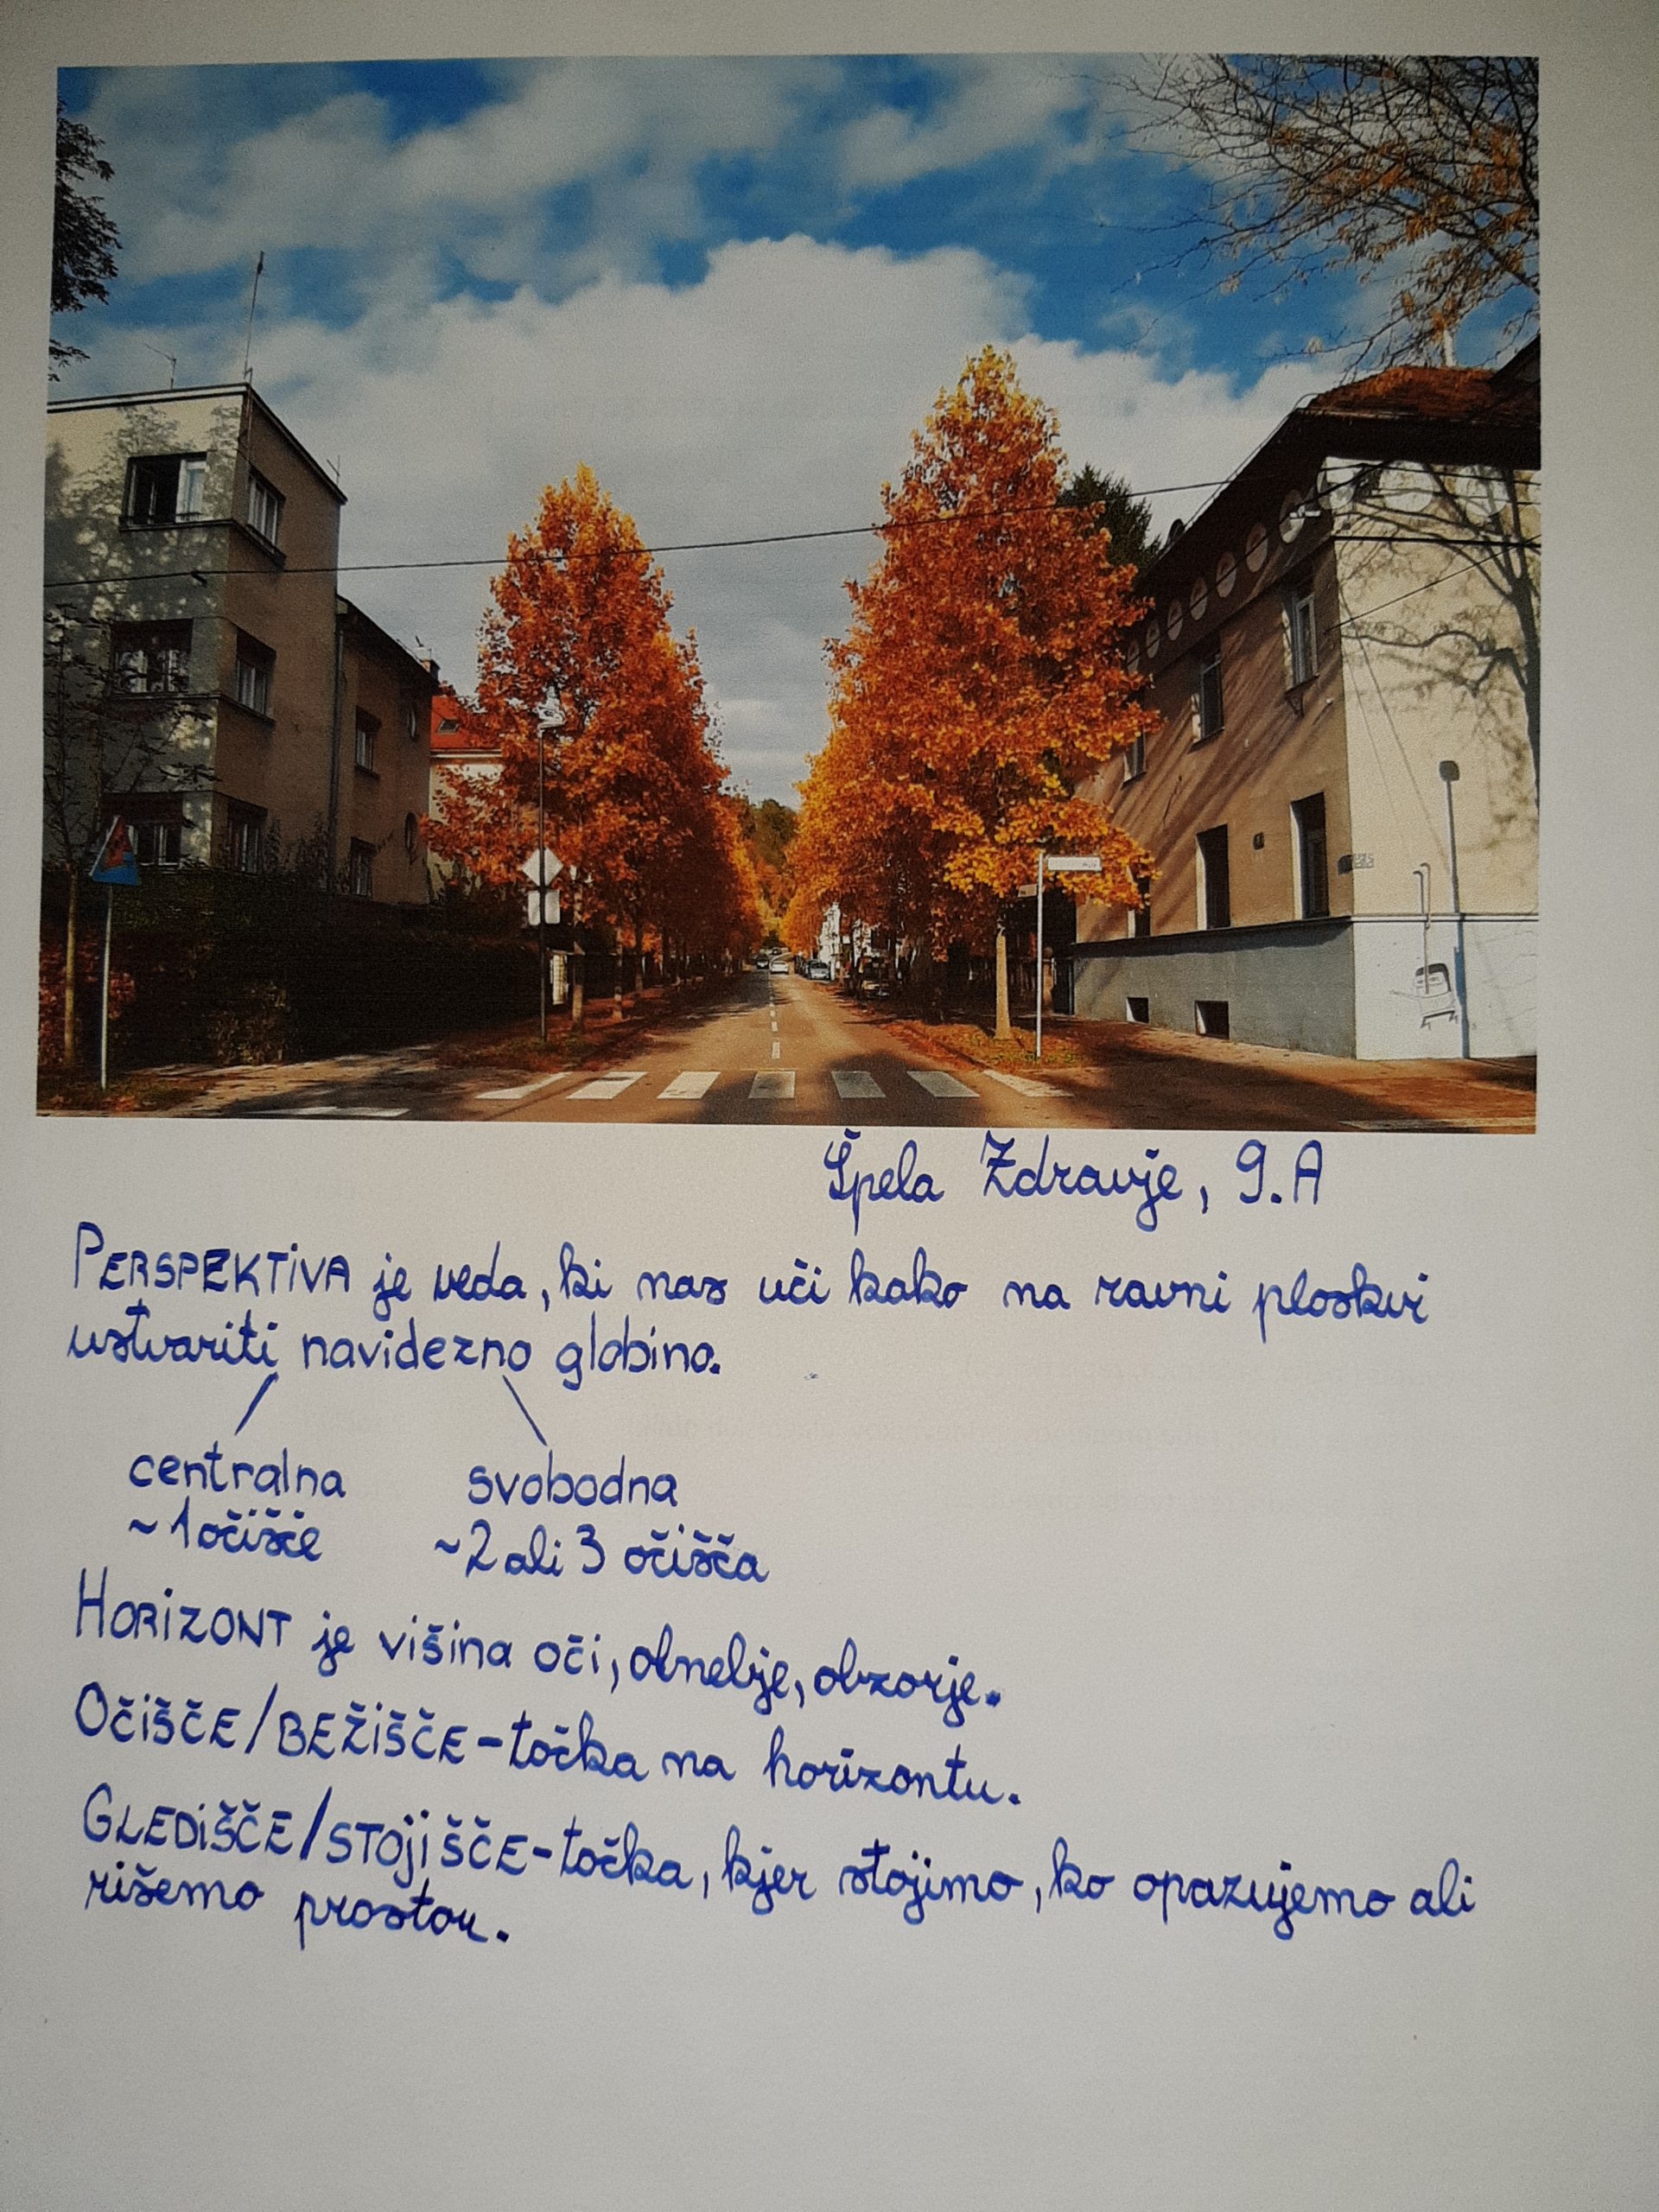 Špela Zdravje, 9.A
PERSPEKTIVA je veda, ki nas uči kako na ravni ploskvi
ustvariti navidezno globino.
centralna svobodna
~1očišče ~2 ali 3 očišča
HORIZONT je višina oči, obnebje, obzorje.
OČIŠČE/BEŽIŠČE-točka na horizontu.
GLEDIŠČE/STOJIŠČE-točka, kjer stojimo, ko opazujemo ali
rišemo prostor.